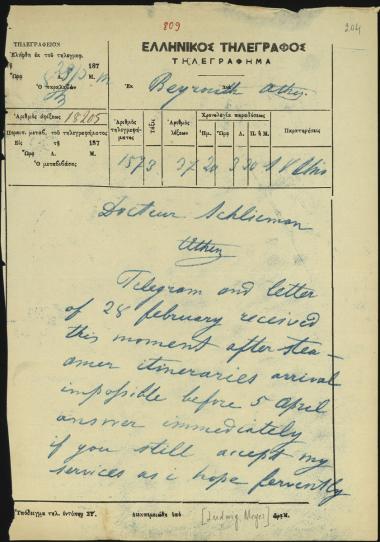 809
204
ΤΗΛΕΓΡΑΦΕΙΟΝ
ΕΛΛΗΝΙΚΟΣ ΤΗΛΕΓΡΑΦΟΣ
ΤΗΛΕΓΡΑΦΗΜΑ
Ἐλήφθη ἐκ τοῦ τηλεγραφ.
τῇ 187
Ὥρᾳ Λ. Μ.
Ὁ παραλαβὼν
Ἐκ Beyrouth Athen
Ἀριθμὸς ἀφίξεως 18205
Εἰς τῇ 187
Ὥρᾳ Λ. Μ.
Ὁ μεταβιβάσας
Ἀριθμὸς τηλεγραφήματος
Τάξις
Ἀριθμὸς λέξεων
Χρονολογία παραδόσεως
Ἡμ. Ὥρ. Λ. Π.ἢ Μ.
Παρατηρήσεις
1573 37 20 3 30
Docteur Schlieman
Athen
Telegram and letter
of 28 february received
this moment after stea-
mer itineraries arrival
impossible before 5 april
answer immediately
if you still accept my
services as i hope fervently
Ὑπόδειγμα τηλ. ἐντύπου ΣΤ΄.
Διεκπεραιώθη ὑπὸ
[Ludwig Meyer]
ὥρ. Μ.